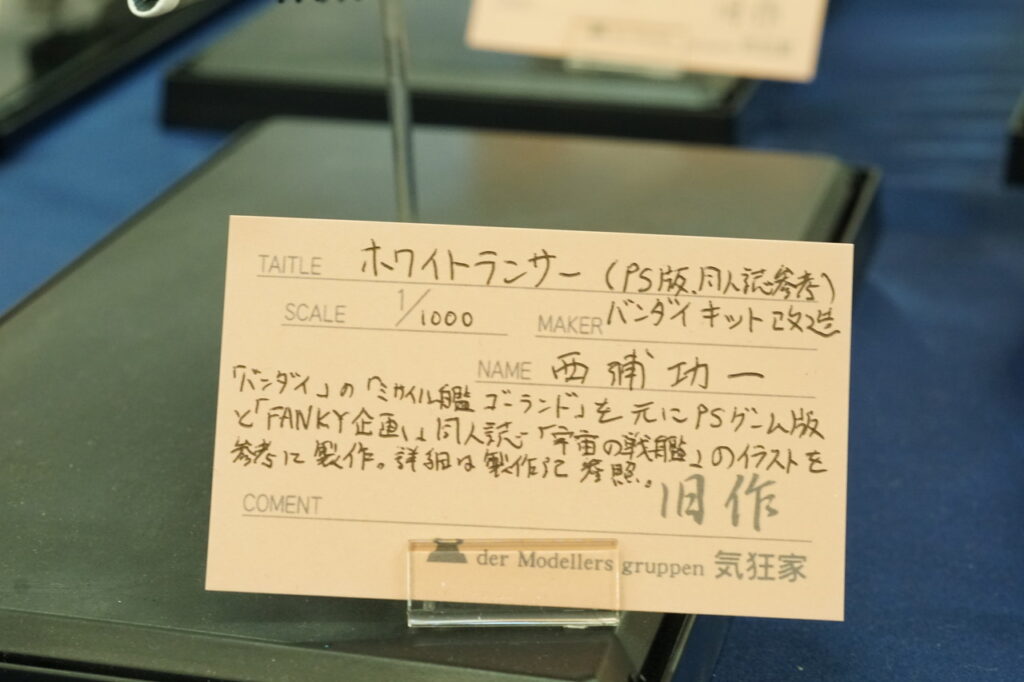 TAITLE ホワイトランサー (PS版、同人誌参考)
SCALE 1/1000
MAKER バンダイ キット改造
NAME 西浦功一
「バンダイ」の「ミサイル艦 ゴーランド」を元にPSゲーム版
と「FANKY企画」同人誌「宇宙の戦艦」のイラストを
参考に製作。詳細は製作記参照。
旧作
COMENT
der Modellers gruppen 気狂家